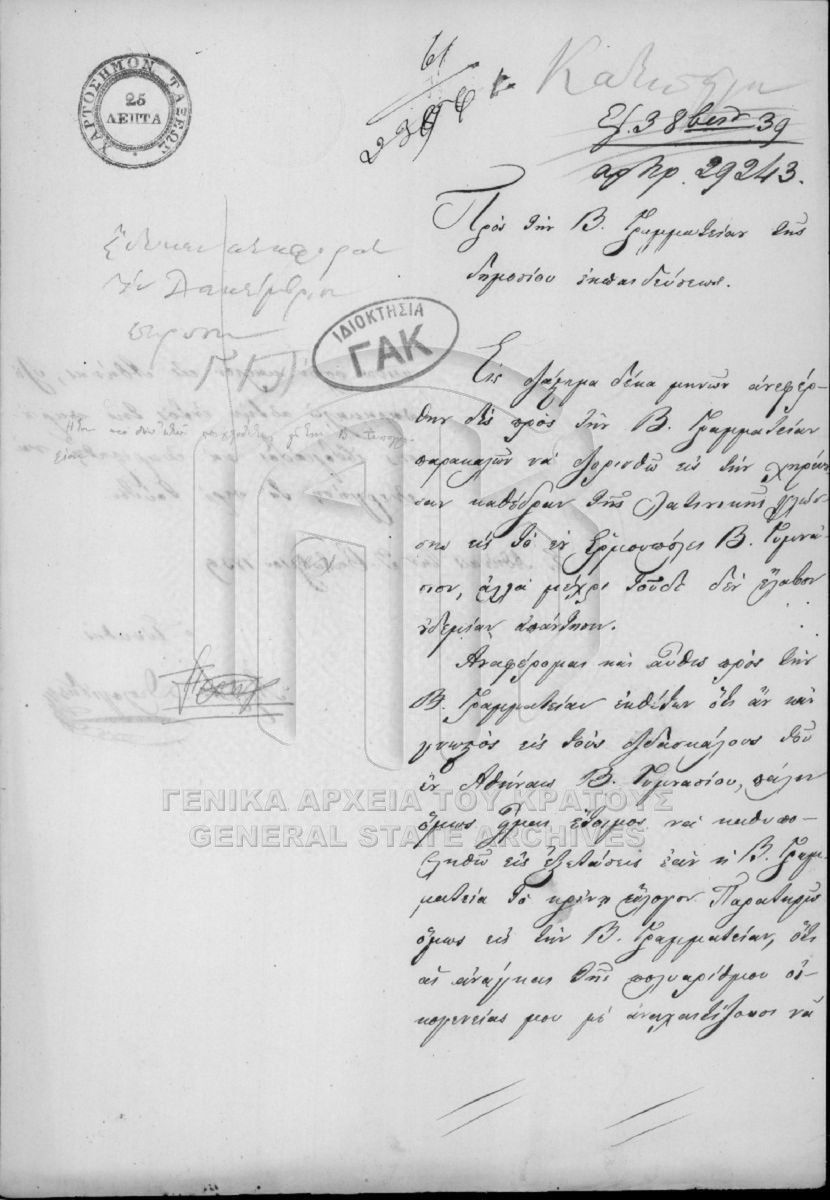 ΧΑΡΤΟΣΗΜΟΝ ΤΑΞΕΩΝ
25
ΛΕΠΤΑ
61
Εφ. 3 8βρίου 39
αρ πρ. 29243.
Πρὸς τὴν Β. Γραμματείαν τῆς
δημοσίου ἐκπαιδεύσεως.
ΙΔΙΟΚΤΗΣΙΑ
ΓΑΚ
Εἰς διάστημα δέκα μηνῶν ἀνεφέρ-
θην δὶς πρὸς τὴν Β. Γραμματείαν
παρακαλῶν νὰ διορισθῶ εἰς τὴν χηρεύου
σαν καθέδραν τῆς Λατινικῆς γλώσ-
σης εἰς τὸ ἐν Ἑρμουπόλει Β. Γυμνά-
σιον, ἀλλὰ μέχρι τοῦδε δὲν ἔλαβον
οὐδεμίαν ἀπάντησιν.
Ἀναφέρομαι καὶ αὖθις πρὸς τὴν
Β. Γραμματείαν ἐκθέτων ὅτι ἂν καὶ
γνωστὸς εἰς τοὺς διδασκάλους τοῦ
ἐν Ἀθήναις Β. Γυμνασίου, πάλιν
ὅμως εἶμαι ἕτοιμος νὰ καθυπο-
βληθῶ εἰς ἐξετάσεις ἐὰν ἡ Β. Γραμ-
ματεία τὸ κρίνῃ εὔλογον. Παρατηρῶ
ὅμως εἰς τὴν Β. Γραμματείαν, ὅτι
αἱ ἀνάγκαι τῆς πολυαρίθμου οἰ-
κογενείας μου μὲ ἀναγκάζουσι νὰ
ΓΕΝΙΚΑ ΑΡΧΕΙΑ ΤΟΥ ΚΡΑΤΟΥΣ
GENERAL STATE ARCHIVES